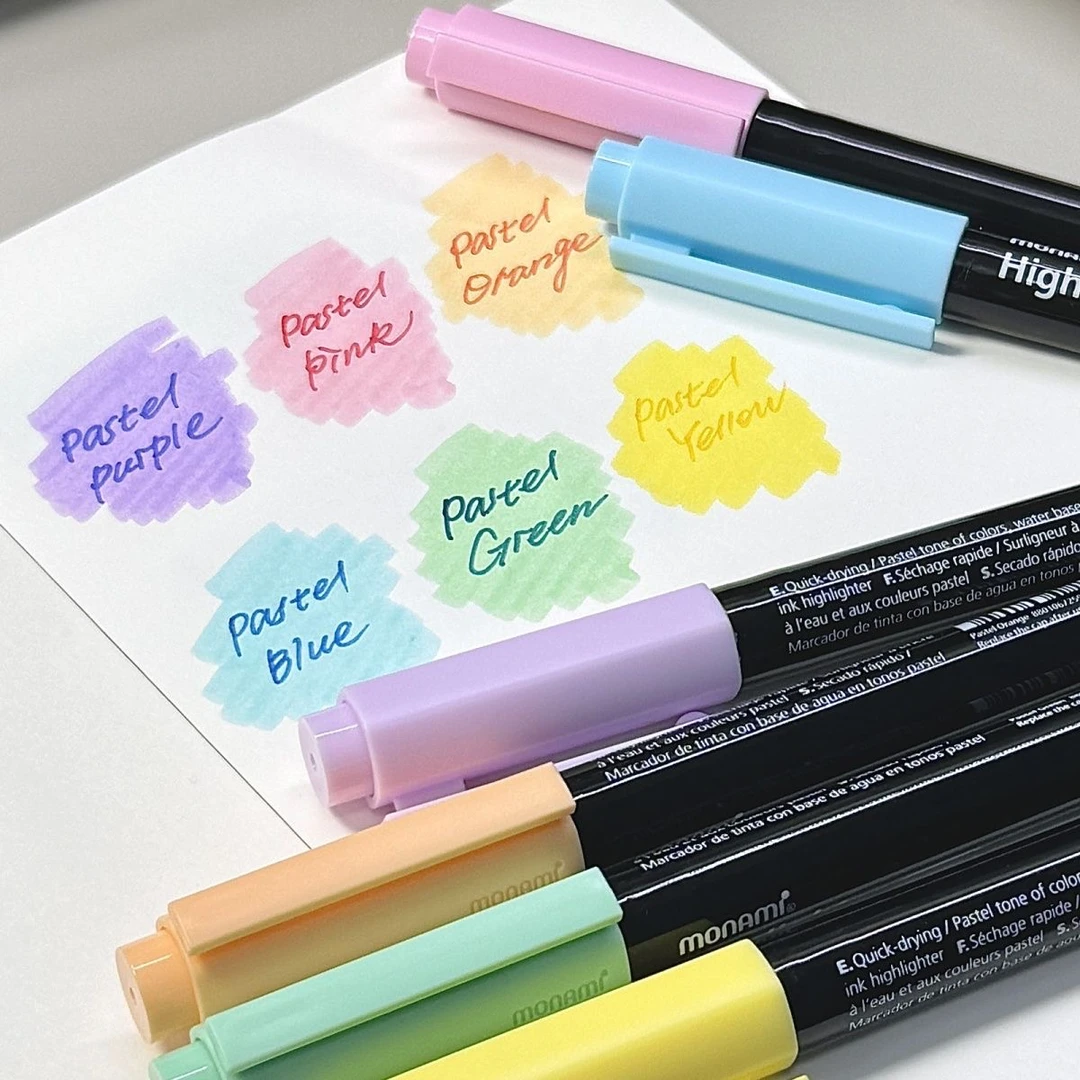 Pastel
Orange
Pastel
pink
Pastel
purple
Pastel
Yellow
Pastel
Green
Pastel
Blue
monami
High
E.Quick-drying / Pastel tone of colors, water base
ink highlighter F.Séchage rapide / Surligneur à
à l'eau et aux couleurs pastel S.Secado rápido
Marcador de tinta con base de agua en tonos
Pastel Orange
Replace the cap after
à l'eau et aux couleurs pastel S.Secado rápido /
Marcador de tinta con base de agua en tonos pastel
Replace the
Marcador de tinta con base de agua en tonos pastel
monami
monami
monami
E.Quick-drying / Pastel tone of color
ink highlighter F.Séchage rapide /
à l'eau et aux couleurs pastel S.
Marcador de tinta con base de